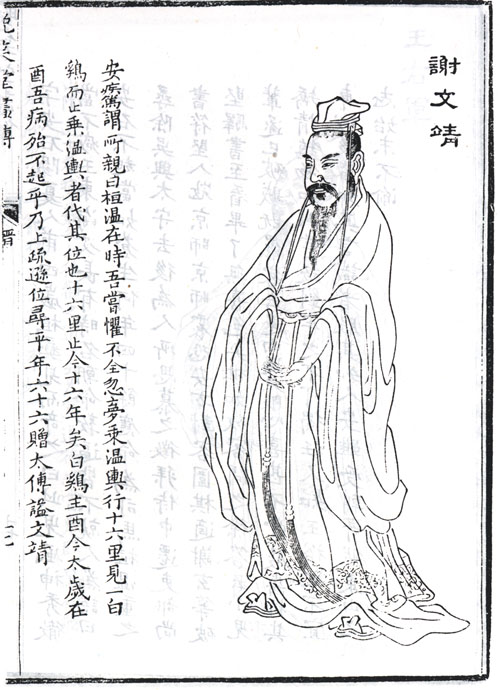 謝文靖
安疾篤謂所親曰桓温在時吾嘗懼不全忽夢乘温輿行十六里見一白
鷄而止乘温輿者代其位也十六里止今十六年矣白鷄主酉今太歲在
酉吾病殆不起乎乃上疏遜位尋卒年六十六贈太傅諡文靖
晚笑堂畫傳